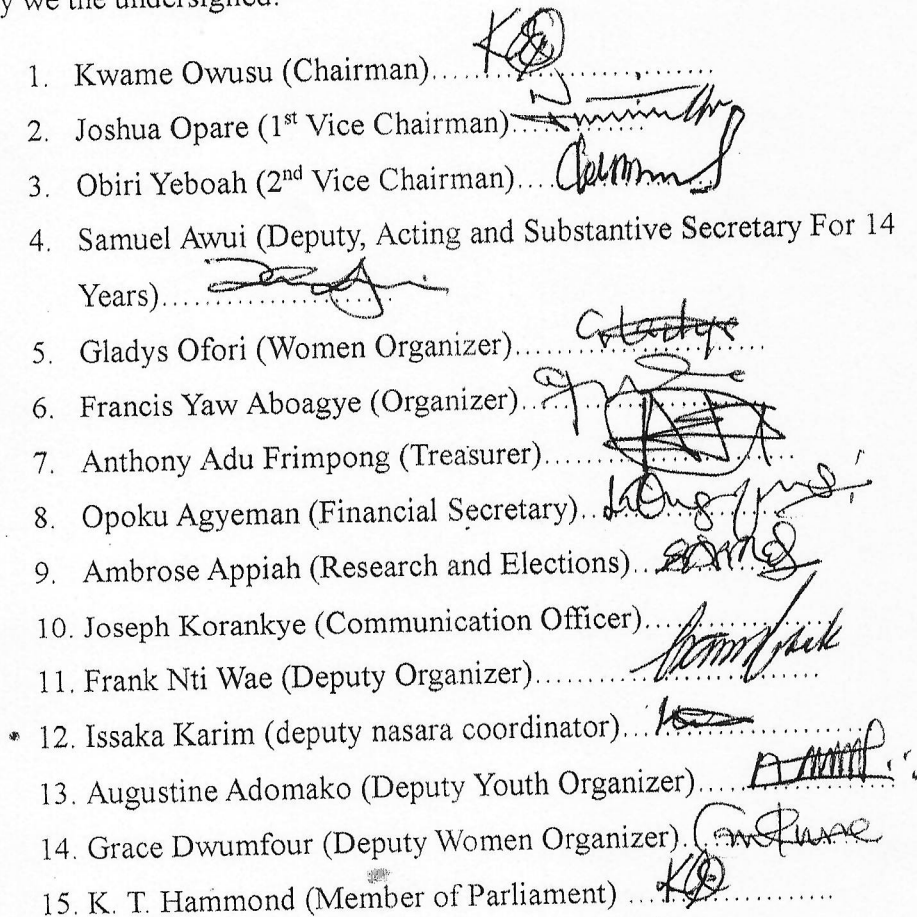 we the undersigned:
1. Kwame Owusu (Chairman)..........................
2. Joshua Opare (1st Vice Chairman)..............
3. Obiri Yeboah (2nd Vice Chairman)....................
4. Samuel Awui (Deputy, Acting and Substantive Secretary For 14
Years)..........................
5. Gladys Ofori (Women Organizer)..........................
6. Francis Yaw Aboagye (Organizer)..........................
7. Anthony Adu Frimpong (Treasurer)..........................
8. Opoku Agyeman (Financial Secretary)....................
9. Ambrose Appiah (Research and Elections)................
10. Joseph Korankye (Communication Officer)....................
11. Frank Nti Wae (Deputy Organizer)..........................
12. Issaka Karim (deputy nasara coordinator)....................
13. Augustine Adomako (Deputy Youth Organizer)....................
14. Grace Dwumfour (Deputy Women Organizer).
15. K. T. Hammond (Member of Parliament) ....................